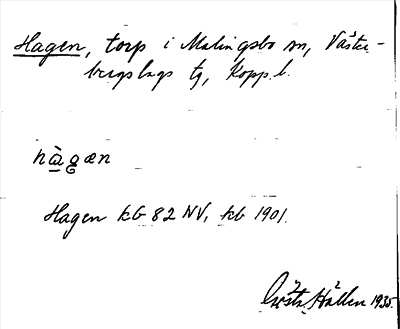 Hagen, torp i Malingsbo sn, Väster-
bergslags tg, Kopp. l.
hàgæn
Hagen kb 82 NV, kb 1901.
Gösta Hållen 1935.